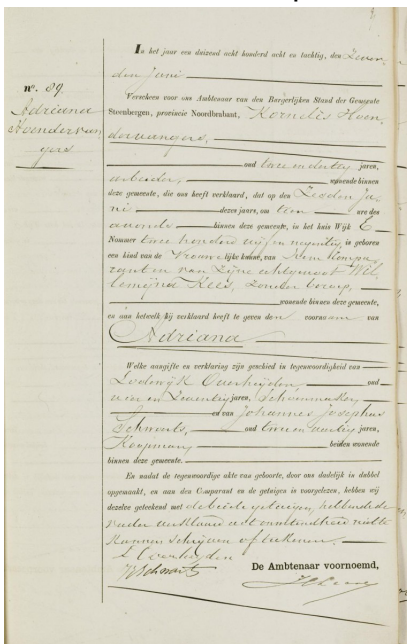 In het jaar een duizend acht honderd acht en tachtig, den Zeven-
den Juni
n°. 89.
Adriana
Hoendervan
gers
Verscheen voor ons Ambtenaar van den Burgerlijken Stand der Gemeente
Steenbergen, provincie Noordbrabant, Kornelis Hoen
dervangers,
oud twee en dertig jaren,
arbeider, wonende binnen
deze gemeente, die ons heeft verklaard, dat op den Zesden Ju
ni dezes jaars, om tien ure des
avonds binnen deze gemeente, in het huis Wijk E
Nommer twee honderd vijf en negentig is geboren
een kind van de Vrouwelijke kunne, van hem Kompa
rant en van Zijne echtgenoot Wil
lemijna Kees, Zonder beroep,
wonende binnen deze gemeente,
en aan hetwelk hij verklaard heeft te geven den voornaam van
Adriana
Welke aangifte en verklaring zijn geschied in tegenwoordigheid van
Lodewijk Overheijden oud
vier en Zeventig jaren, Schoenmaker
en van Johannes Josephus
Schwarts, oud twee en veertig jaren,
Koopman, beiden wonende
binnen deze gemeente.
En nadat de tegenwoordige akte van geboorte, door ons dadelijk in dubbel
opgemaakt, en aan den Comparant en de getuigen is voorgelezen, hebben wij
dezelve geteekend met de beide getuigen, hebbende de
Vader verklaard uit onkunde niet te
kunnen schrijven of teekenen.
L Overheijden
Schwarts
De Ambtenaar voornoemd,